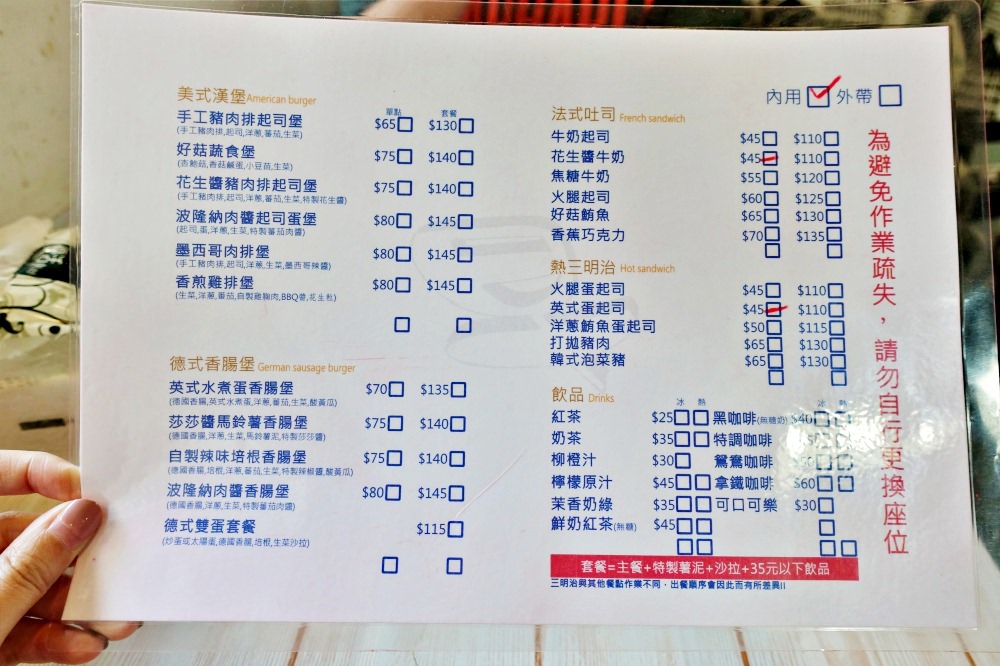 美式漢堡 American burger
單點 套餐
手工豬肉排起司堡 $65 $130
(手工豬肉排,起司,洋蔥,蕃茄,生菜)
好菇蔬食堡 $75 $140
(杏鮑菇,香菇鹹蛋,小豆苗,生菜)
花生醬豬肉排起司堡 $75 $140
(手工豬肉排,起司,洋蔥,蕃茄,生菜,特製花生醬)
波隆納肉醬起司蛋堡 $80 $145
(起司,蛋,洋蔥,生菜,特製蕃茄肉醬)
墨西哥肉排堡 $80 $145
(手工豬肉排,起司,洋蔥,生菜,墨西哥辣醬)
香煎雞排堡 $80 $145
(生菜,洋蔥,番茄,自製雞胸肉,BBQ醬,花生粒)
德式香腸堡 German sausage burger
英式水煮蛋香腸堡 $70 $135
(德國香腸,英式水煮蛋,洋蔥,蕃茄,生菜,酸黃瓜)
莎莎醬馬鈴薯香腸堡 $75 $140
(德國香腸,洋蔥,生菜,馬鈴薯泥,特製莎莎醬)
自製辣味培根香腸堡 $75 $140
(德國香腸,培根,洋蔥,蕃茄,生菜,特製辣椒醬,酸黃瓜)
波隆納肉醬香腸堡 $80 $145
(德國香腸,洋蔥,生菜,特製蕃茄肉醬)
德式雙蛋套餐 $115
(炒蛋或太陽蛋,德國香腸,培根,生菜沙拉)
內用 外帶
法式吐司 French sandwich
牛奶起司 $45 $110
花生醬牛奶 $45 $110
焦糖牛奶 $55 $120
火腿起司 $60 $125
好菇鮪魚 $65 $130
香蕉巧克力 $70 $135
熱三明治 Hot sandwich
火腿蛋起司 $45 $110
英式蛋起司 $45 $110
洋蔥鮪魚蛋起司 $50 $115
打拋豬肉 $65 $130
韓式泡菜豬 $65 $130
飲品 Drinks
冰 熱 冰 熱
紅茶 $25 黑咖啡(無糖奶) $40
奶茶 $35 特調咖啡
柳橙汁 $30 鴛鴦咖啡
檸檬原汁 $45 拿鐵咖啡 $60
茉香奶綠 $35 可口可樂 $30
鮮奶紅茶(無糖) $45
套餐=主餐+特製薯泥+沙拉+35元以下飲品
三明治與其他餐點作業不同，出餐順序會因此而有所差異!!
為避免作業疏失，請勿自行更換座位